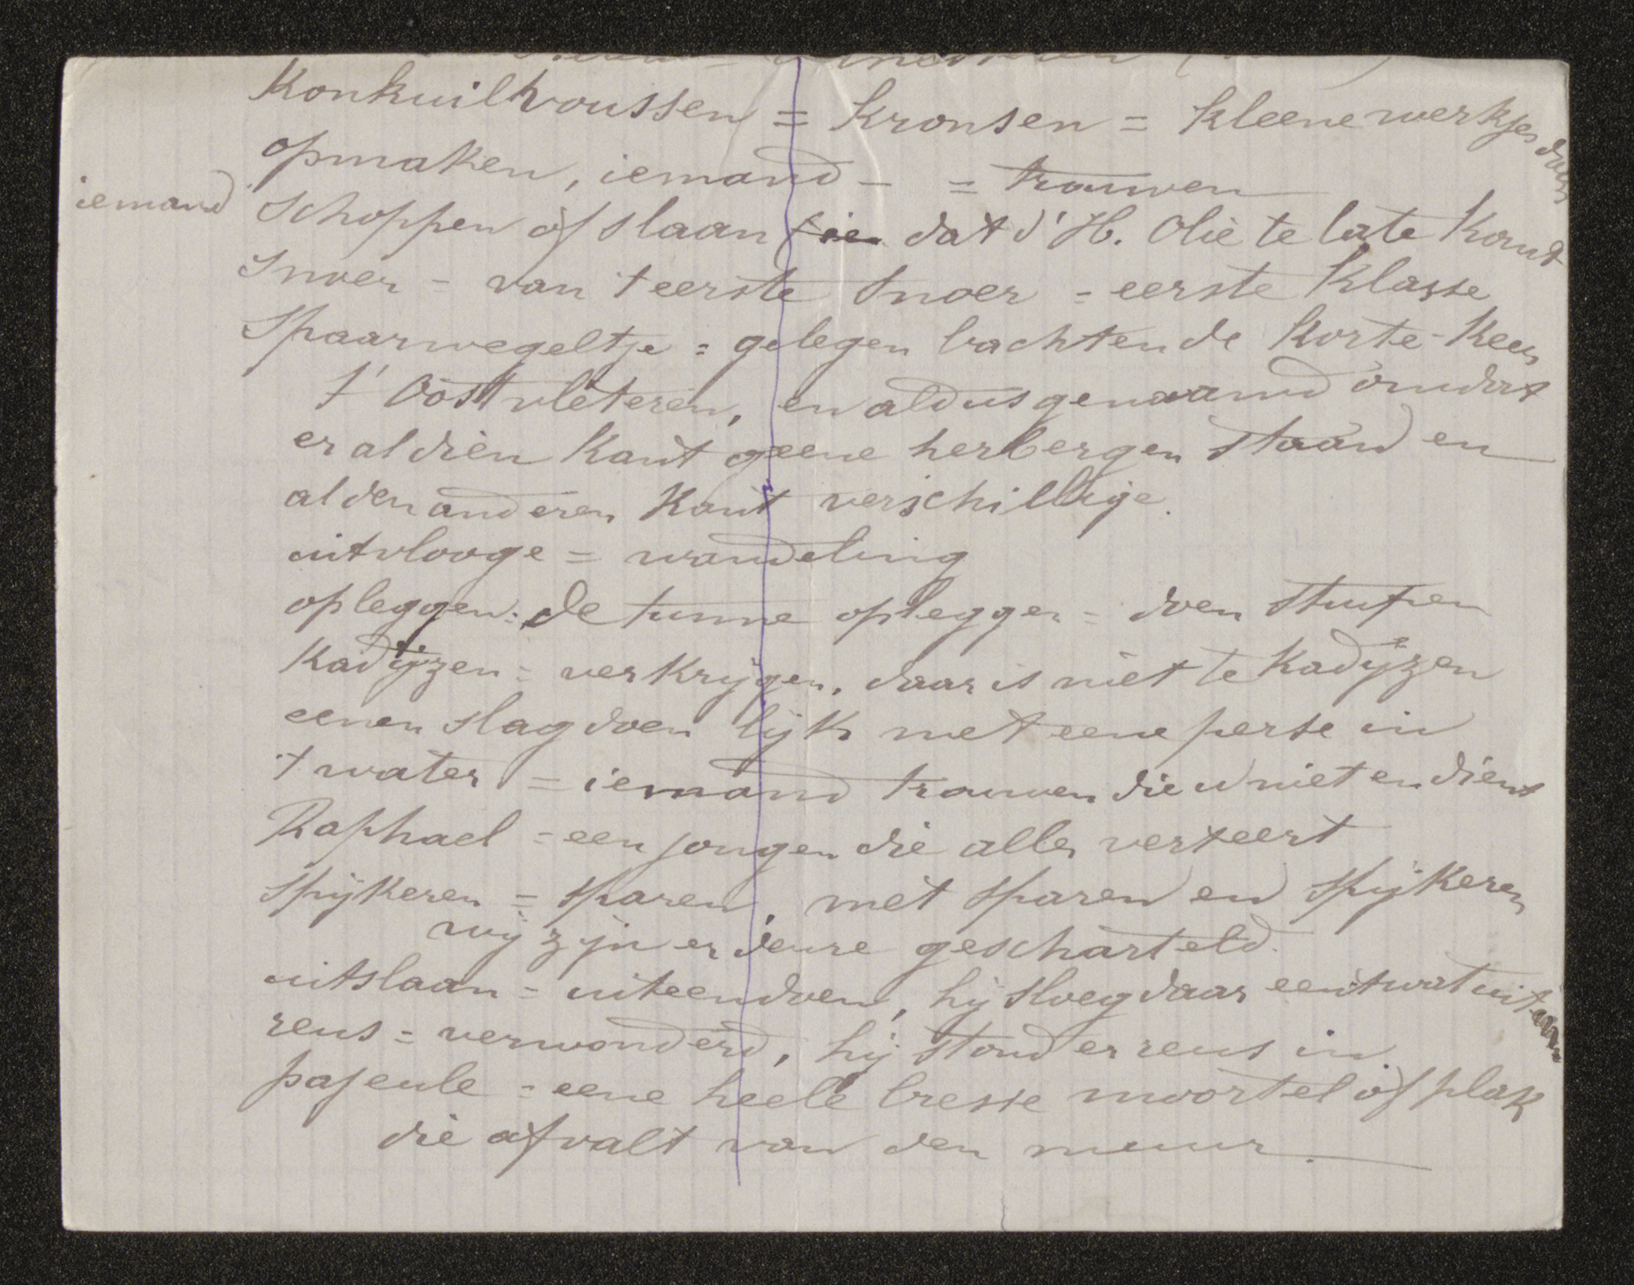 Konkuilvoussen = kronsen = kleene werkjes doen
opmaken, iemand - = trouwen
iemand schoppen of slaan dat d'H. Olie te late komt
snoer = van t eerste snoer = eerste klasse
Spaarwegeltje = gelegen bachten de Korte-Keer
t' Oostvleteren, en aldus genaamd omdat
er al dien kant geene herbergen staan en
al den anderen kant verschillige.
uitvlooge = wandeling
opleggen: de tunne opleggen = doen stuipen
Kadijzen = verkrijgen, daar is niet te kadijzen
eenen slag doen lijk met eene perse in
't water = iemand trouwen die u niet en dient
Raphael = een jongen die alles verteert
spijkeren = sparen, met sparen en spijkeren
wij zijn er deure gescharteld.
uitslaan = uiteendoen, hij sloeg daar eentwat uit
reus = verwonderd, hij stond er reus in
pajeule = eene heele bresse moortel of plak
die afvalt van den muur.